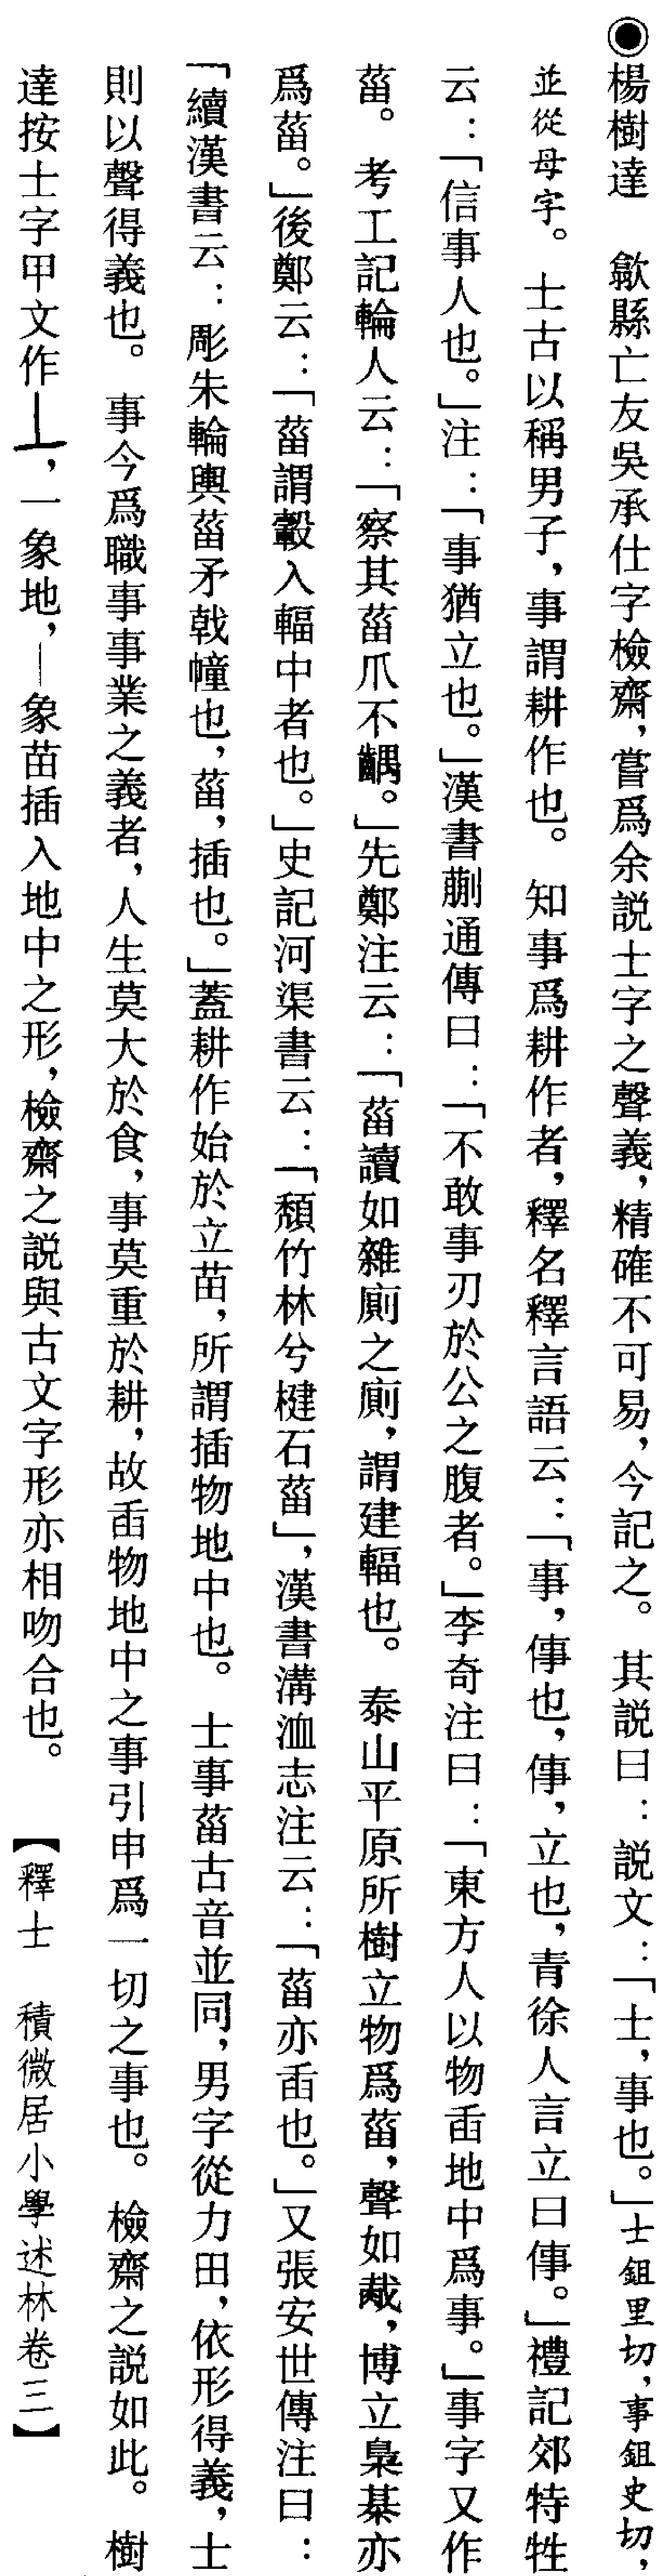 ◉楊樹達　歙縣亡友吳承仕字檢齋，嘗爲余説士字之聲義，精確不可易，今記之。其説曰：説文：「士，事也。」士鉏里切，事鉏史切，
並從母字。士古以稱男子，事謂耕作也。知事爲耕作者，釋名釋言語云：「事，倳也，倳，立也，青徐人言立曰倳。」禮記郊特牲
云：「信事人也。」注：「事猶立也。」漢書蒯通傳曰：「不敢事刃於公之腹者。」李奇注曰：「東方人以物臿地中爲事。」事字又作
菑。考工記輪人云：「察其菑爪不齵。」先鄭注云：「菑讀如雜廁之廁，謂建輻也。泰山平原所樹立物爲菑，聲如胾，博立梟棊亦
爲菑。」後鄭云：「菑謂轂入輻中者也。」史記河渠書云：「頹竹林兮楗石菑」，漢書溝洫志注云：「菑亦臿也。」又張安世傳注曰：
「續漢書云：彫朱輪輿菑矛戟幢也，菑，插也。」蓋耕作始於立苗，所謂插物地中也。士事菑古音並同，男字從力田，依形得義，士
則以聲得義也。事今爲職事事業之義者，人生莫大於食，事莫重於耕，故臿物地中之事引申爲一切之事也。檢齋之説如此。樹
達按士字甲文作⊥，一象地，丨象苗插入地中之形，檢齋之説與古文字形亦相吻合也。【釋士　積微居小學述林卷三】